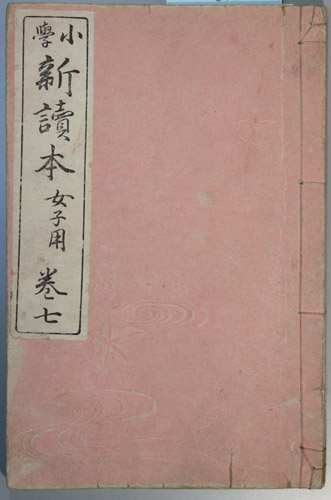 小學
新讀本
女子用
巻七